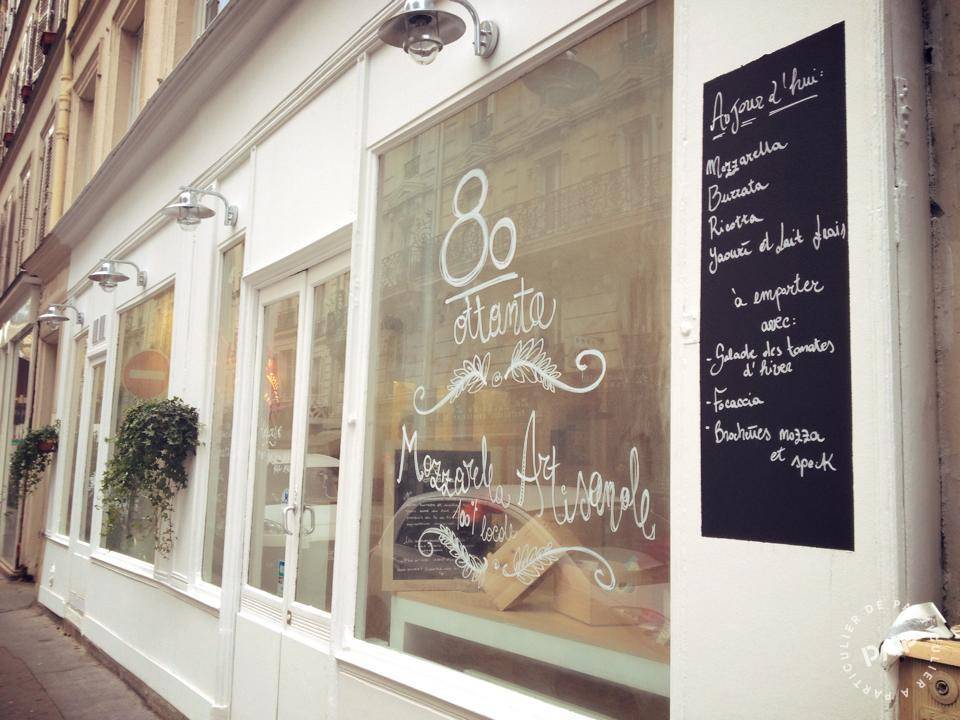 80
ottanta
Mozzarella Artisanale
100% locale
Aujour d'hui:
Mozzarella
Burrata
Ricotta
Yaourt et Lait frais
à emporter
avec:
- Salade des tomates
d'hiver
- Focaccia
- Brochettes mozza
et speck
DE PARTICULIER À PARTICULIER
PAP